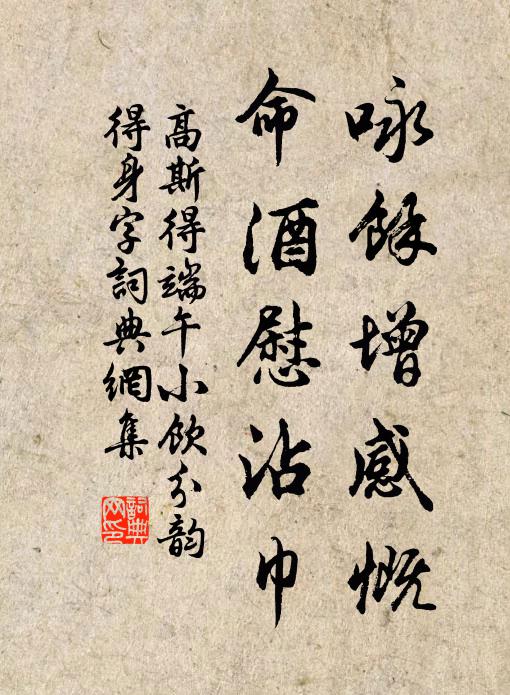 咏餘增感慨
命酒慰沾巾
高斯得端午小飲分韵
得身字詞典網集
詞典
网印